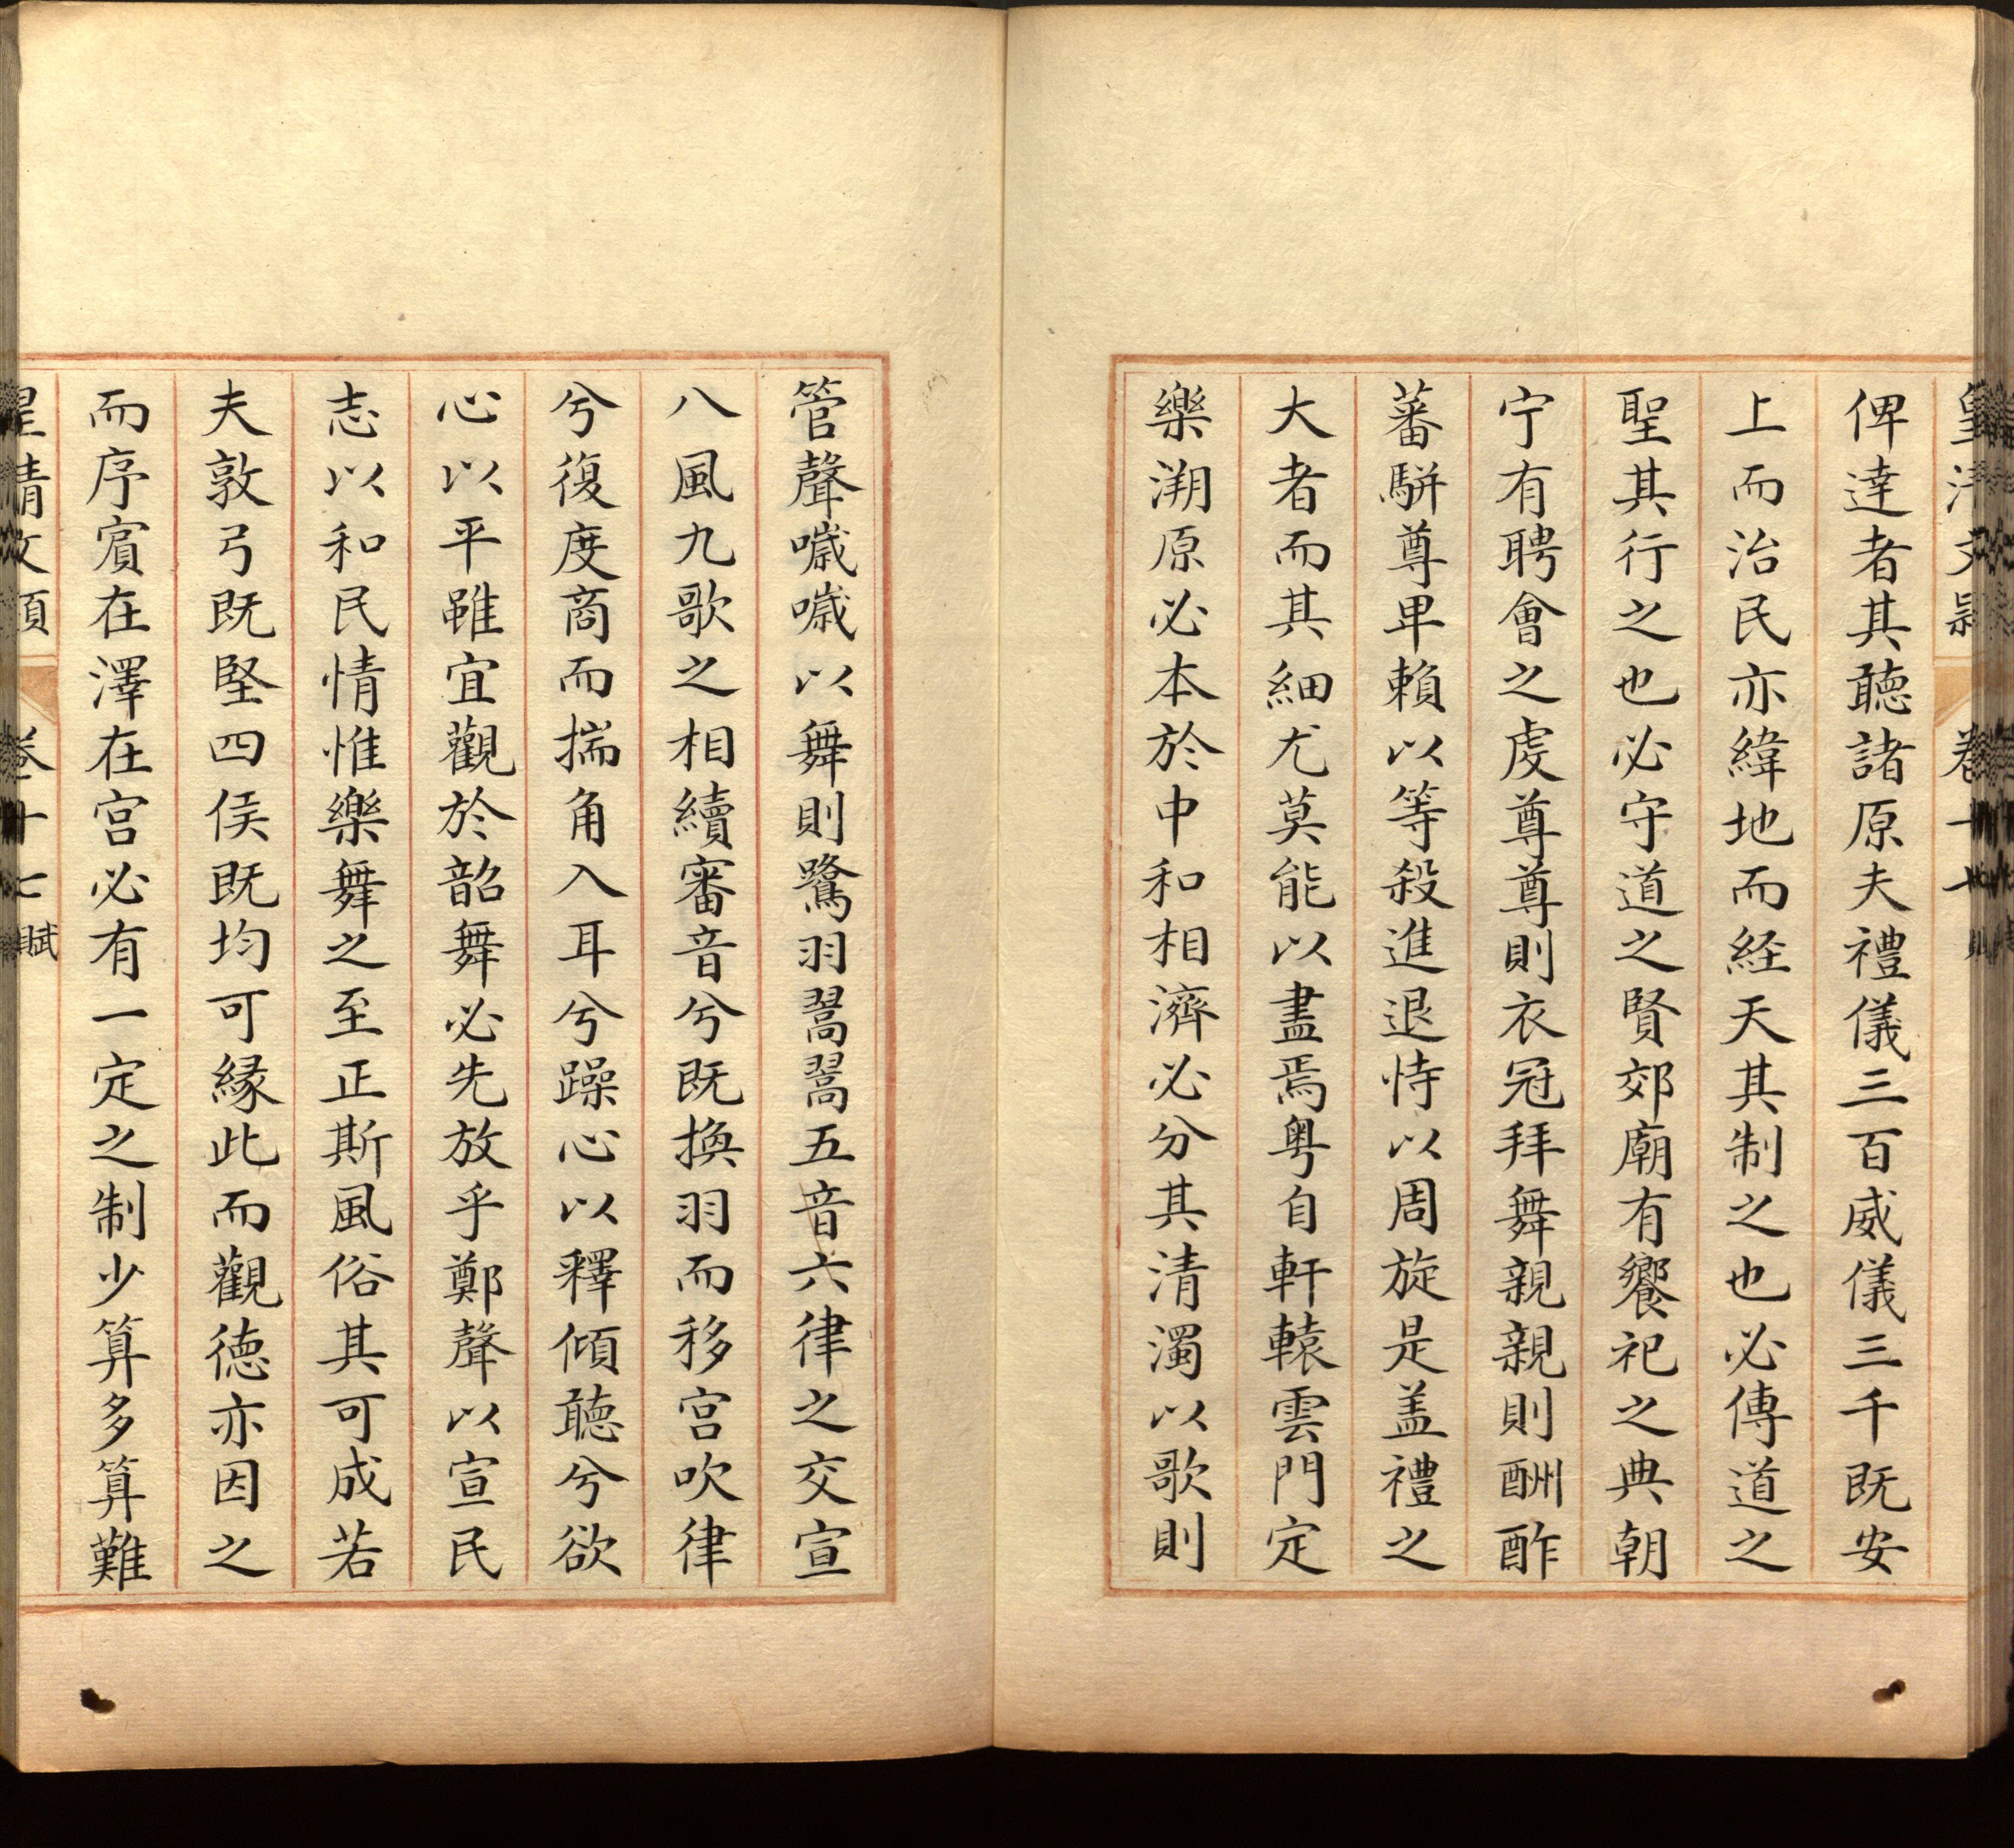 皇清文穎 卷十七
俾達者其聽諸原夫禮儀三百威儀三千既安
上而治民亦緯地而経天其制之也必傳道之
聖其行之也必守道之賢郊廟有饗祀之典朝
宁有聘會之䖏尊尊則衣冠拜舞親親則酬酢
蕃駢尊卑賴以等殺進退恃以周旋是盖禮之
大者而其細尤莫能以盡焉粤自軒轅雲門定
樂溯原必本於中和相濟必分其清濁以歌則
管聲噦噦以舞則鷺羽翯翯五音六律之交宣
八風九歌之相續審音兮既換羽而移宫吹律
兮復度商而揣角入耳兮躁心以釋傾聽兮欲
心以平雖宜觀於韶舞必先放乎鄭聲以宣民
志以和民情惟樂舞之至正斯風俗其可成若
夫敦弓既堅四侯既均可縁此而觀徳亦因之
而序賔在澤在宫必有一定之制少算多算難
皇清文穎 卷十七 賦